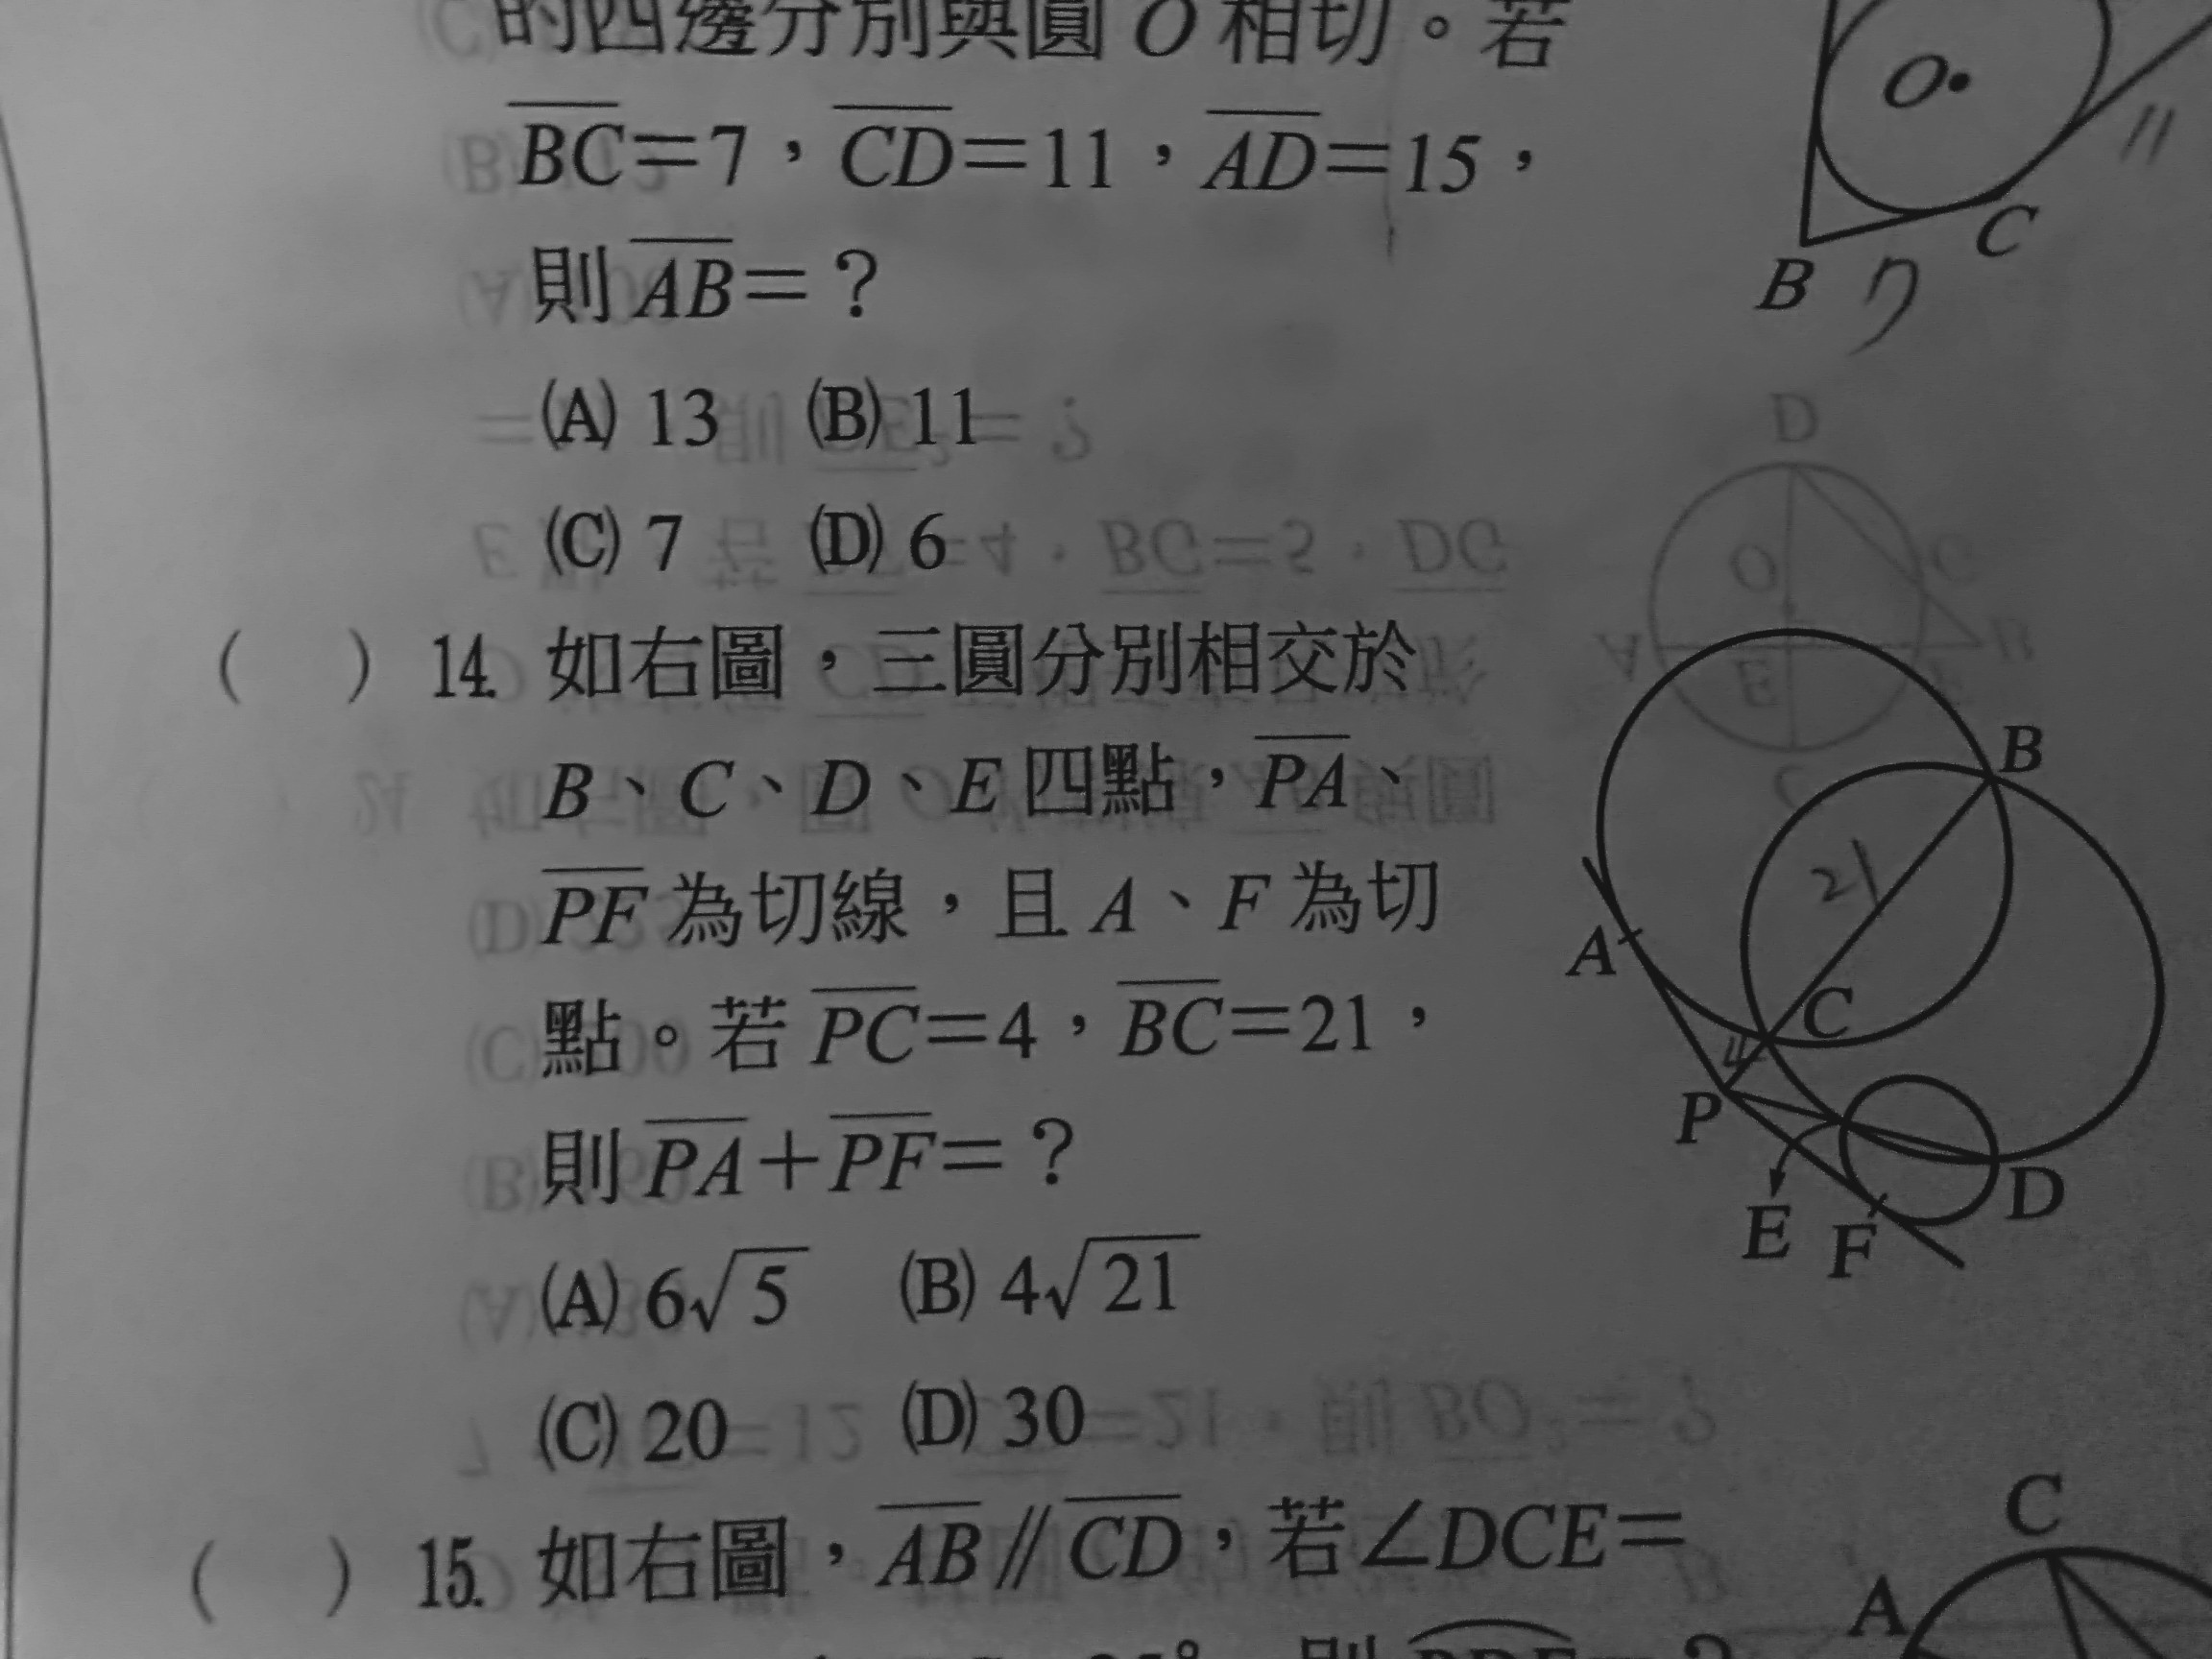 的四邊分別與圓 O 相切。若
BC=7，CD=11，AD=15，
則 AB=？
(A) 13 (B) 11
(C) 7 (D) 6
O
11
C
B 7
( ) 14. 如右圖，三圓分別相交於
B、C、D、E 四點，PA、
PF 為切線，且 A、F 為切
點。若 PC=4，BC=21，
則 PA+PF=？
(A) 6√5 (B) 4√21
(C) 20 (D) 30
B
21
A
C
4
P
D
E F
( ) 15. 如右圖，AB∥CD，若∠DCE=
C
A